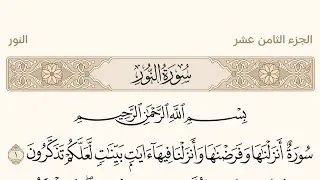 الجزء الثامن عشر
النور
سُورَةُ النُّورِ
بِسْمِ اللَّهِ الرَّحْمَٰنِ الرَّحِيمِ
سُورَةٌ أَنزَلْنَٰهَا وَفَرَضْنَٰهَا وَأَنزَلْنَا فِيهَآ ءَايَٰتٍۭ بَيِّنَٰتٍ لَّعَلَّكُمْ تَذَكَّرُونَ ١